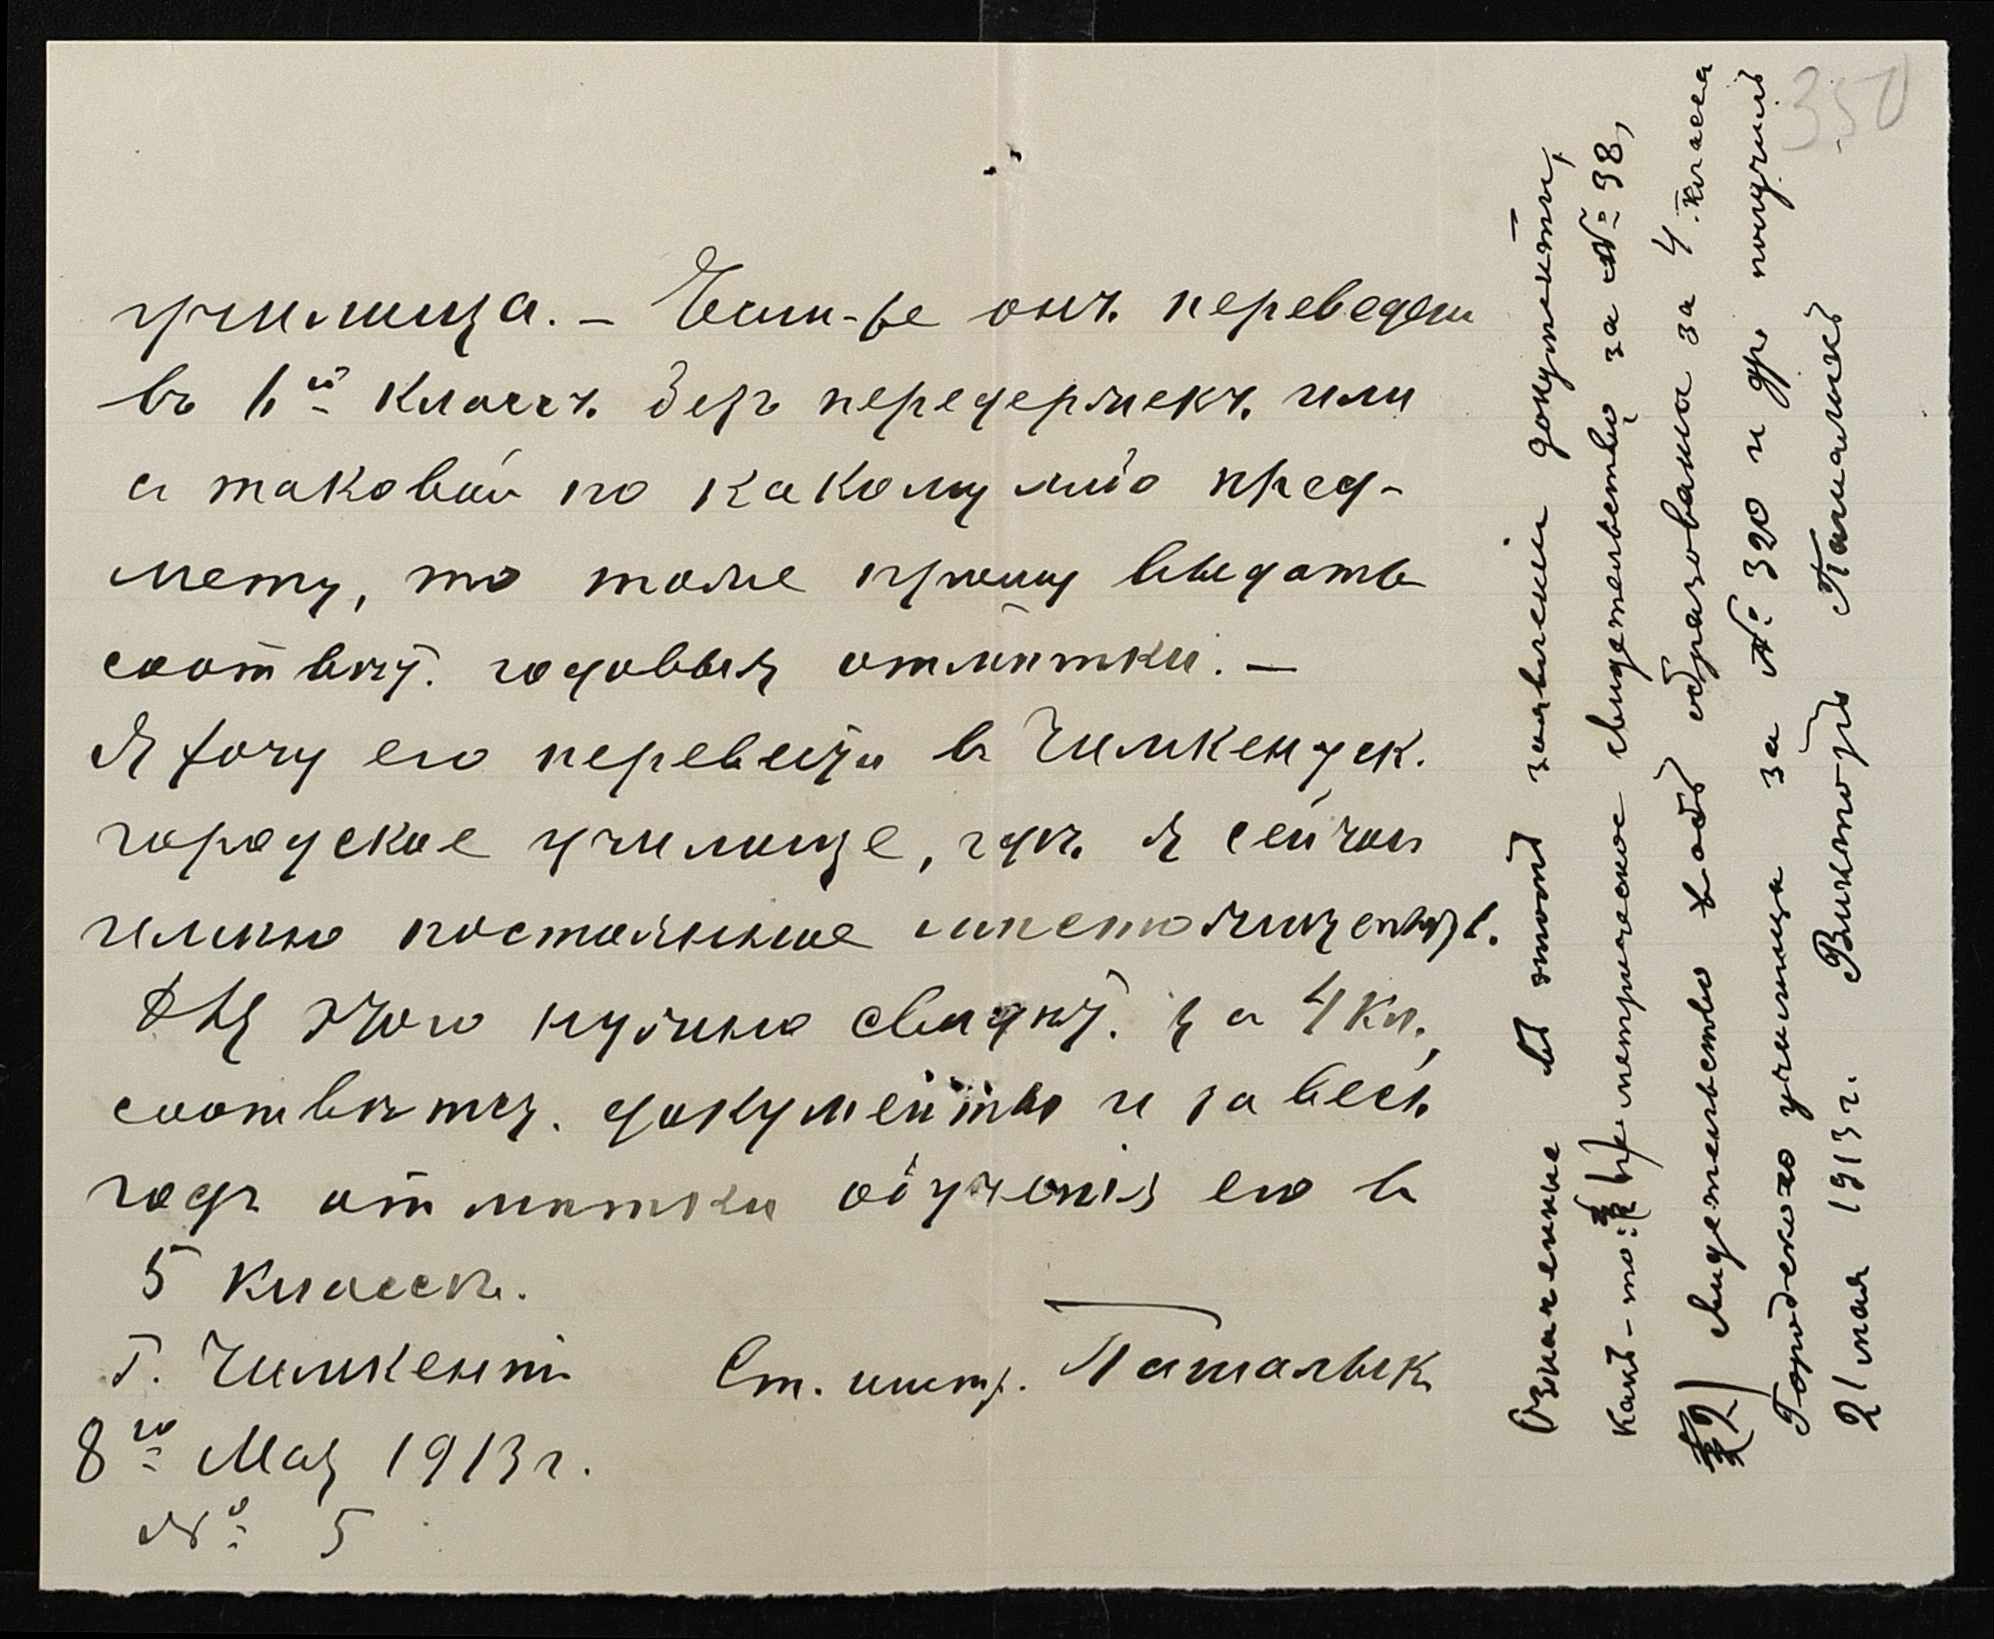 училища. – Если-же онъ переведен
въ 6й классъ безъ передержекъ или
с таковой по какому либо пред-
мету, то тоже прошу выдать
соотвѣт. годовыя отмѣтки. –
Я хочу его перевезти в Чимкентск.
городское училище, гдѣ я сейчас
имѣю постоянное мѣстожительств.
Для этого нужно свидѣт. за 4 кл.,
соотвѣтст. документы и за весь
годъ отмѣтки обученія его в
5 классѣ.
Г. Чимкентъ Ст. инстр. Паталык
8го Мая 1913 г.
№ 5
350
Означенные въ этомъ заявленіи документы,
какъ-то: 1) метрическое свидѣтельство за № 38,
2) свидѣтельство объ образованіи за 4 класса
Городского училища за № 320 и др. получилъ
21 мая 1913 г. Викторъ Паталыкъ